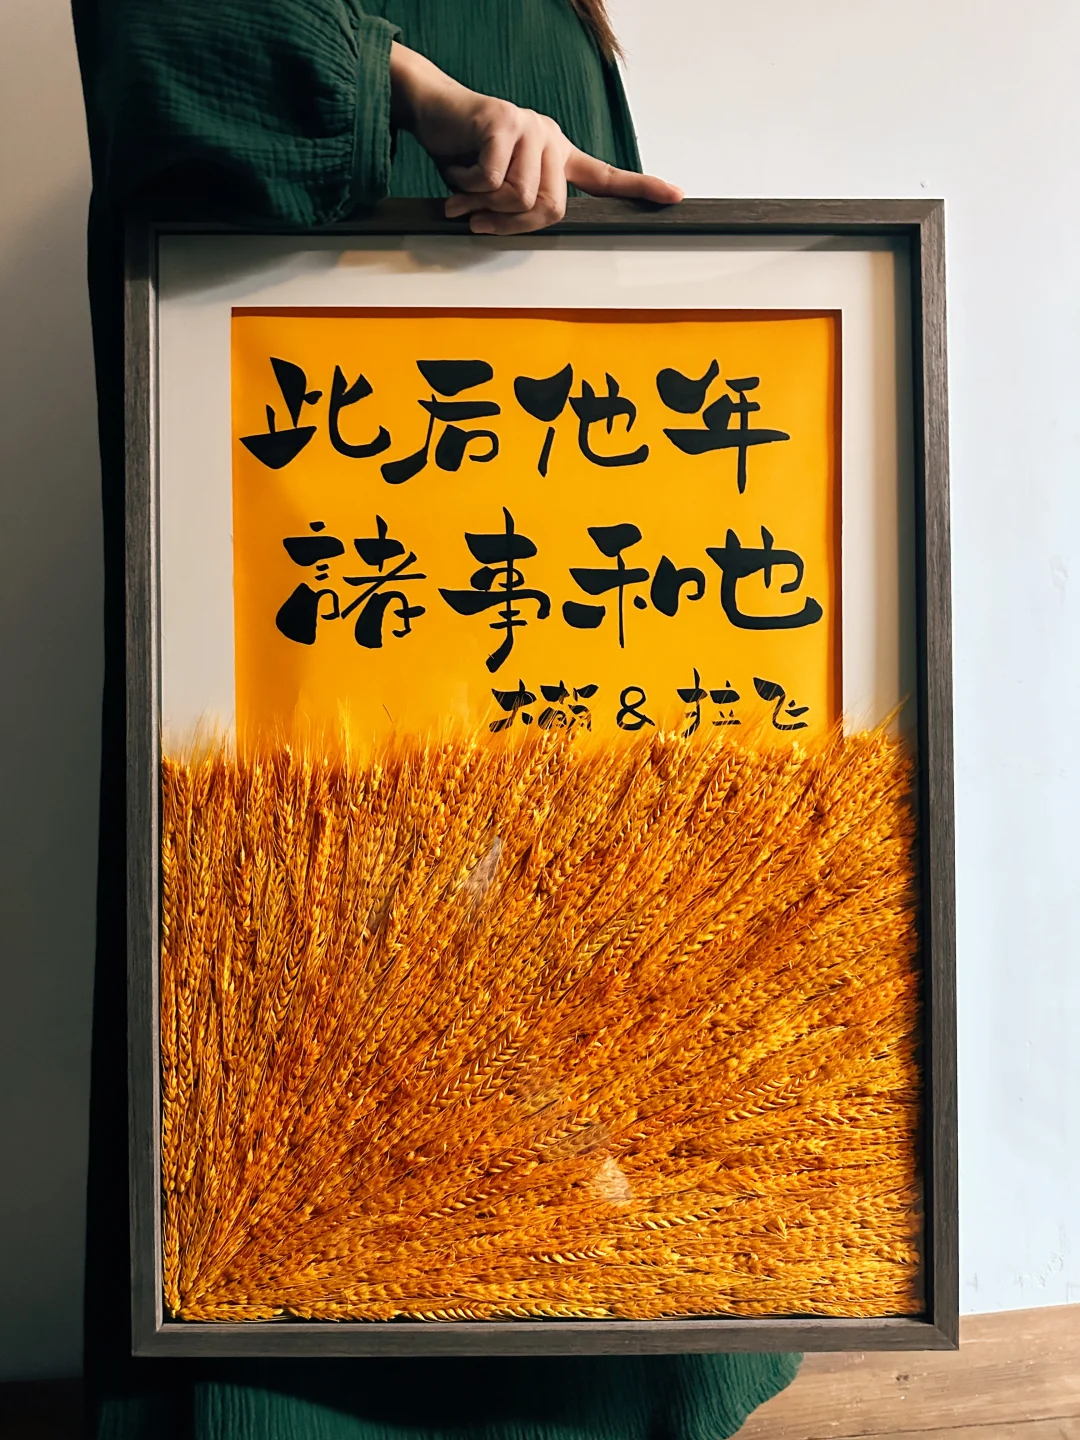 此后他年
諸事和也
大萌 & 拉飞